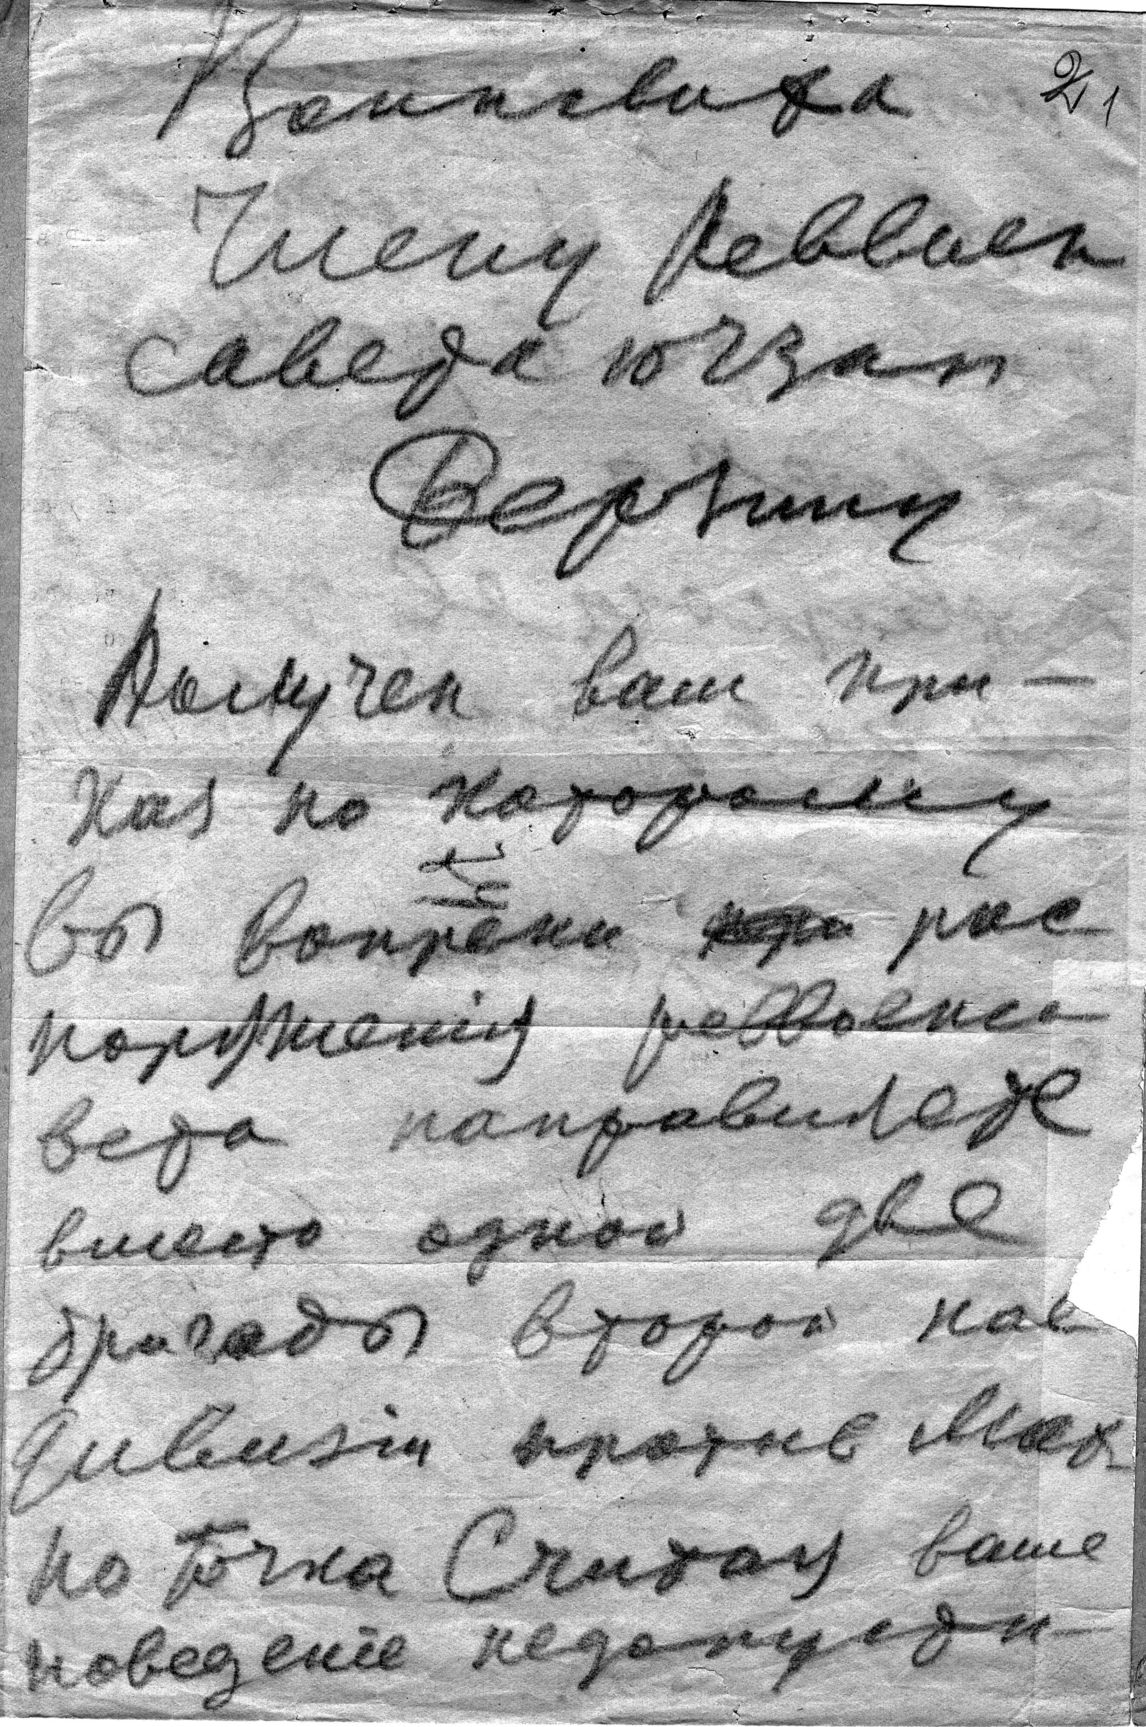 21
Члену Реввоен
совета югзап
Берзину
Получен ваш при-
каз по которому
вы вопреки рас
поряжения реввоенсо
вета направляете
вместо одной две
бригады второй кав
дивизiи против Мах
но Точка Считая ваше
поведенiе недопусти-